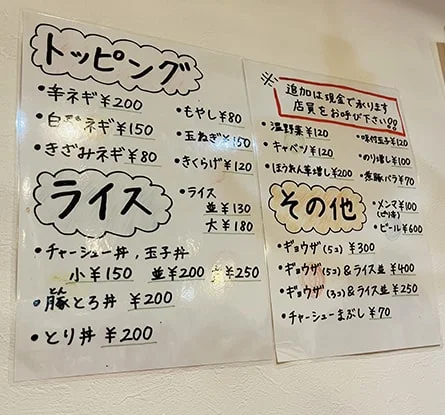 トッピング
・辛ネギ¥200
・白髪ネギ¥150
・きざみネギ¥80
・もやし¥80
・玉ねぎ¥150
・きくらげ¥120
ライス
・ライス
並¥130
大¥180
・チャーシュー丼、玉子丼
小¥150 並¥200 大¥250
・豚とろ丼 ¥200
・とり丼 ¥200
※
追加は現金で承ります
店員をお呼び下さい!!
・温野菜¥120
・キャベツ¥120
・ほうれん草増し¥200
・味付玉子¥120
・のり増し¥100
・煮豚バラ¥70
その他
・メンマ¥100
・ビール¥600
・ギョウザ(5コ) ¥300
・ギョウザ(5コ)&ライス並¥400
・ギョウザ(3コ)&ライス並¥250
・チャーシューまぶし ¥70